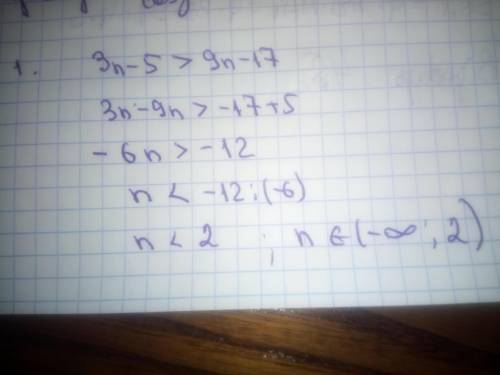 1. 3n-5 > 9n-17
3n-9n > -17+5
-6n > -12
n < -12:(-6)
n < 2 ; n ∈ (-∞; 2)